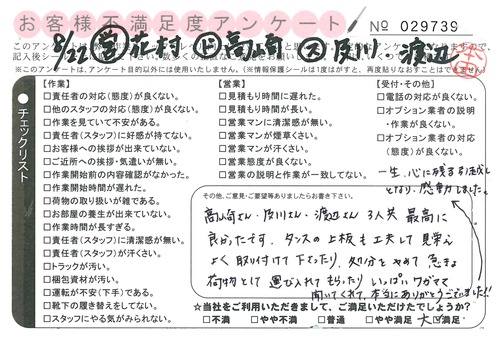 お客様不満足度アンケート
No 029739
8/22 営 花村 ド 高崎 ス 及川・渡辺
※このアンケートは、アンケート目的以外には使用いたしません。(※情報保護シールは1度はがすと、再度貼りなおすことはできません)
チェックリスト
【作業】
□責任者の対応(態度)が良くない。
□他のスタッフの対応(態度)が良くない。
□作業を見ていて不安がある。
□責任者(スタッフ)に好感が持てない。
□お客様への挨拶が出来ていない。
□ご近所への挨拶・気遣いが無い。
□作業開始前の内容確認がなかった。
□作業開始時間が遅れた。
□荷物の取り扱いが雑である。
□お部屋の養生が出来ていない。
□作業時間が長すぎる。
□責任者(スタッフ)に清潔感が無い。
□責任者(スタッフ)が汗くさい。
□トラックが汚い。
□梱包資材が汚い。
□運転が不安(下手)である。
□靴下の履き替えをしてない。
□スタッフにやる気がみられない。
【営業】
□見積もり時間に遅れた。
□見積もり時間が長い。
□営業マンに清潔感が無い。
□営業マンが煙草くさい。
□営業マンが汗くさい。
□営業態度が良くない。
□営業の説明と作業が一致してない。
【受付・その他】
□電話の対応が良くない。
□オプション業者の説明
・作業が良くない。
□オプション業者の対応
(態度)が良くない。
一生、心に残る引越し
となり、感動しました。
その他、ご意見・ご要望等ありましたらお書き下さい。
高崎さん・及川さん・渡辺さん 3人共 最高に
良かったです。タンスの上板も工夫して見栄え
よく取り付けて下さったり、処分をやめて急きょ
荷物として運び入れてもらったり いっぱいワガママ
聞いてくれて、本当にありがとうございました!!
☆当社をご利用いただきまして、ご満足いただけたでしょうか?
□不満 □やや不満 □普通 □やや満足 大□満足